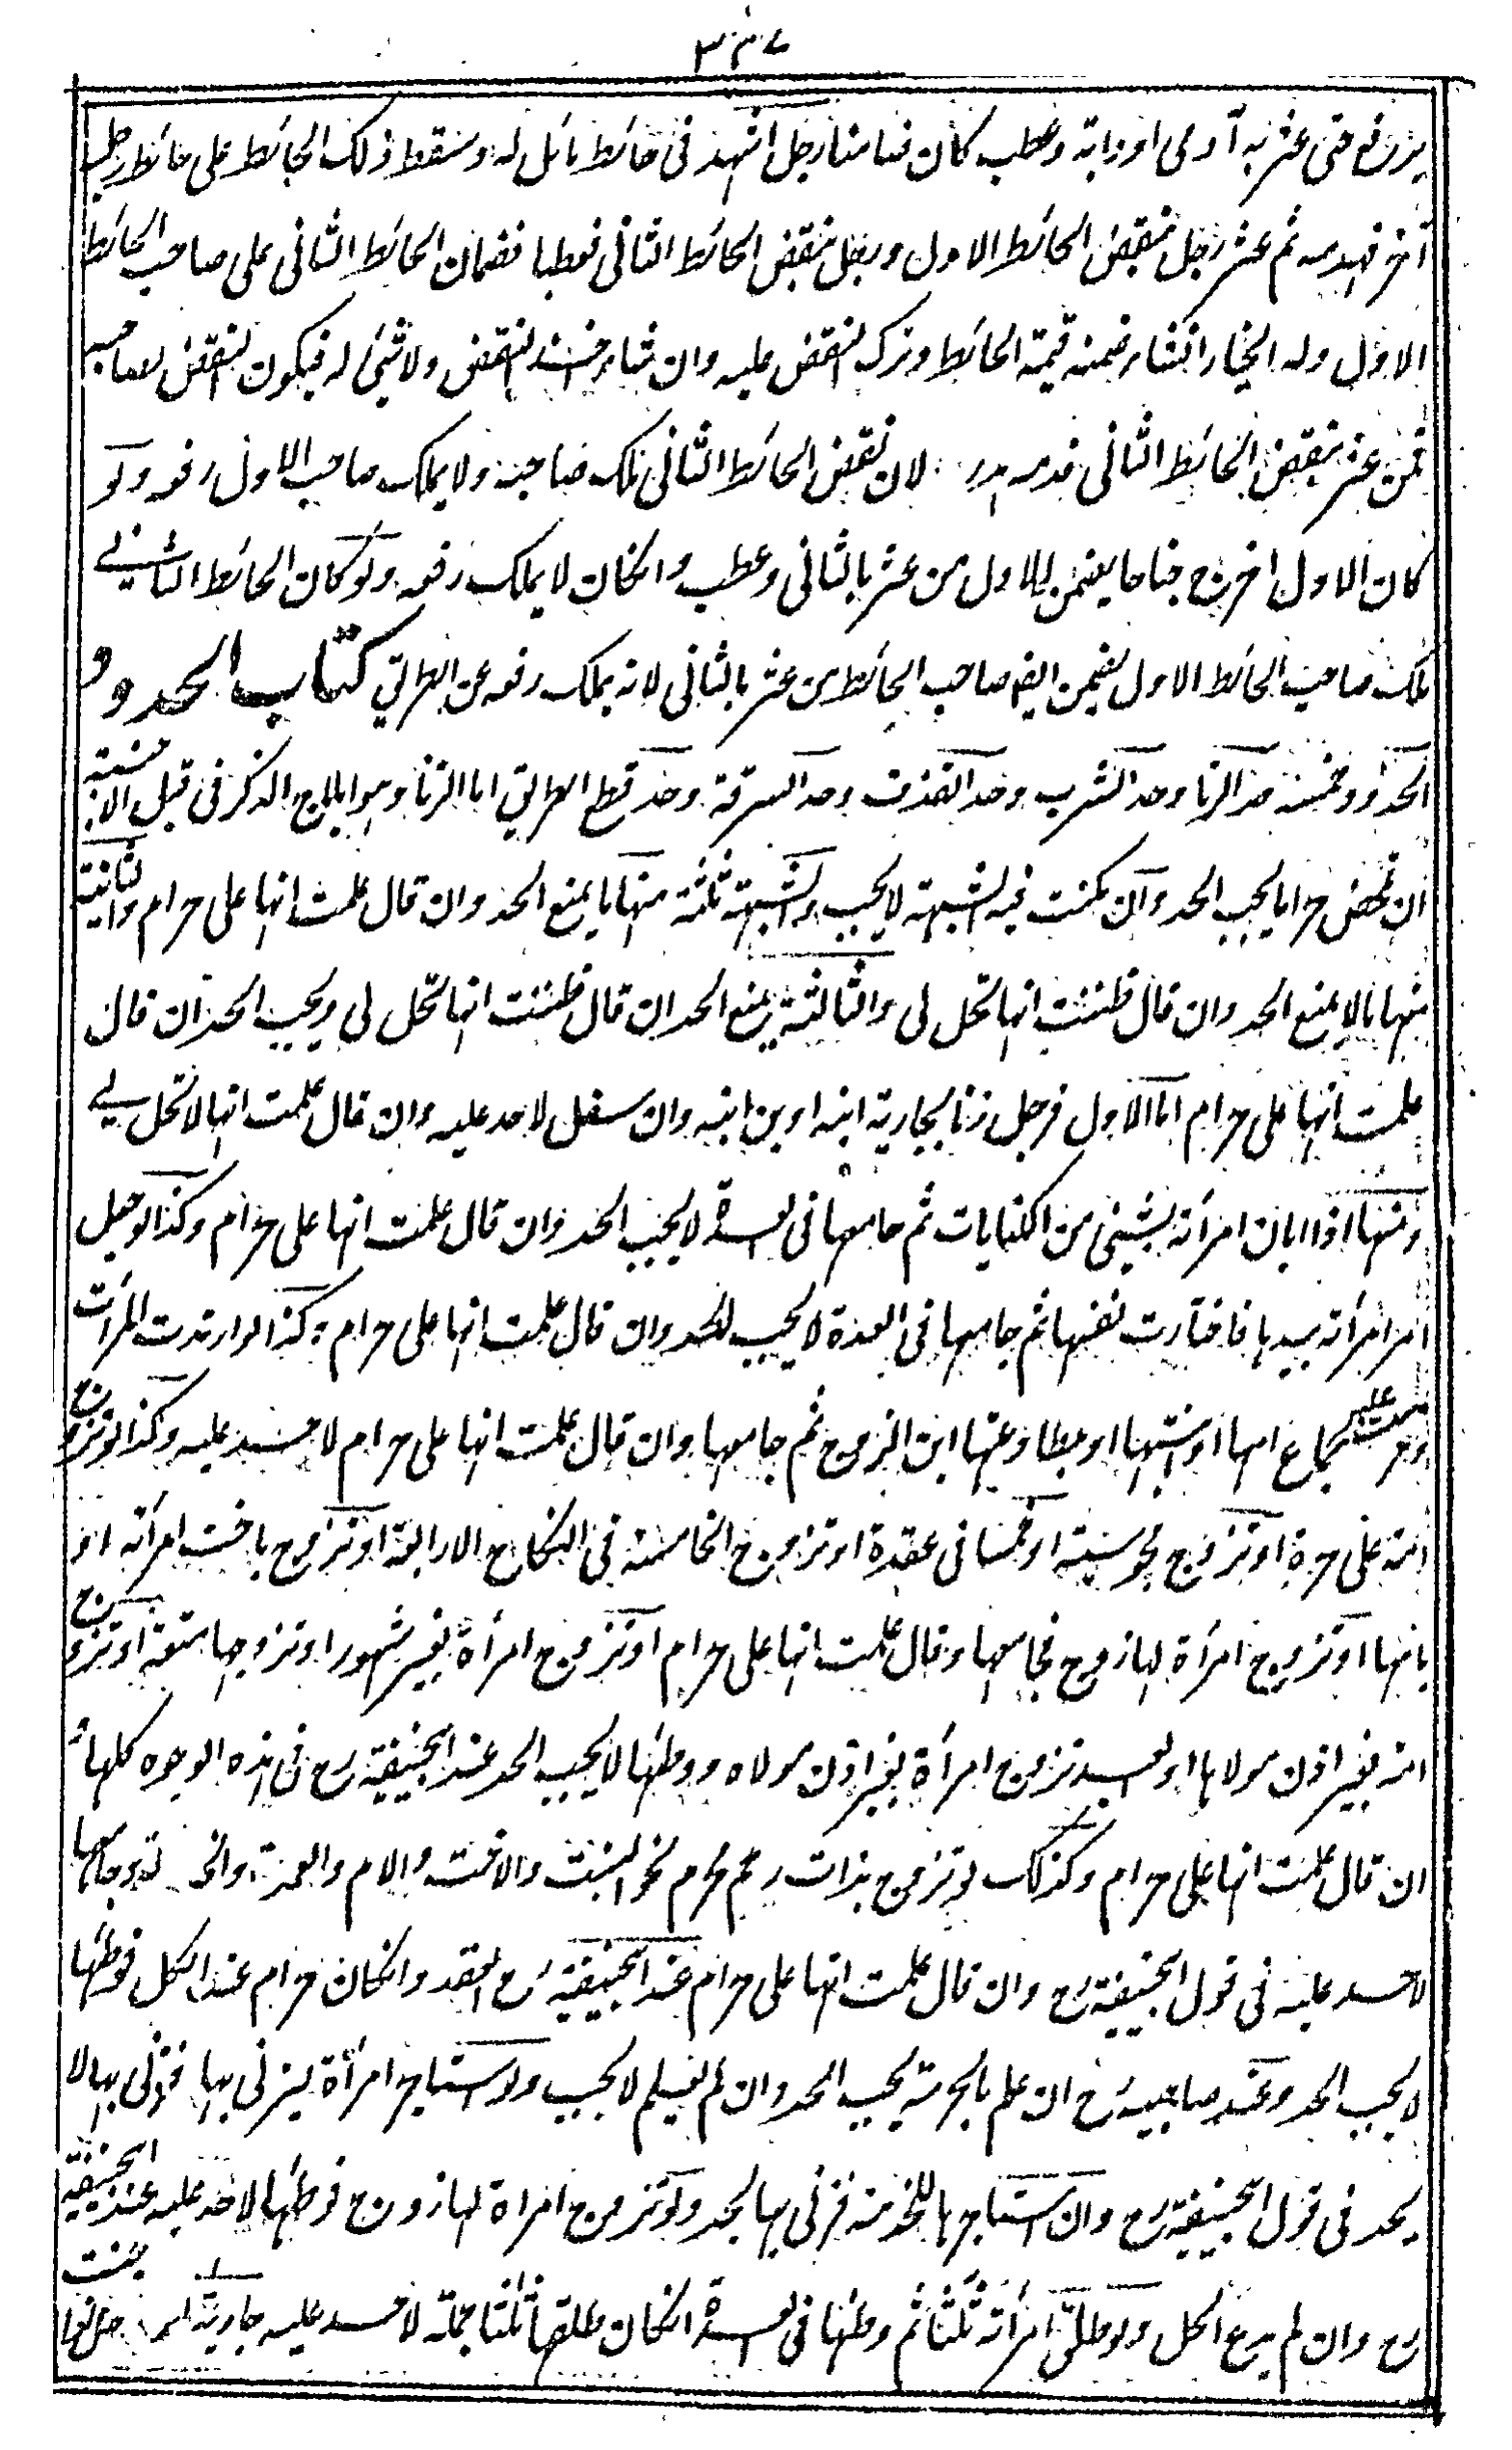 ٣٣٧
يرفع حتى عثر به آدمى او دابة وعطب كان ضامنا رجل اشهد فى حائط مائل له وسقط ذلك الحائط على حائط رجل
آخر فهدمه ثم عثر رجل بنقض الحائط الاول ورجل بنقض الحائط الثانى فعطبا فضمان الحائط الثانى على صاحب الحائط
الاول وله الخيار انشاء ضمنه قيمة الحائط وترك النقض عليه وان شاء اخذ النقض ولا شئ له فيكون النقض لصاحبه
فمن عثر بنقض الحائط الثانى فدمه هدر لان نقض الحائط الثانى ملك صاحبه ولا يملك صاحب الاول رفعه ولو
كان الاول اخرج جناحا يضمن الاول من عثر بالثانى وعطب وانكان لا يملك رفعه ولو كان الحائط الثانى
ملك صاحب الحائط الاول يضمن ايضا صاحب الحائط من عثر بالثانى لانه يملك رفعه عن الطريق كتاب الحدود
الحدود خمسة حد الزنا وحد الشرب وحد القذف وحد السرقة وحد قطع الطريق اما الزنا وهو ايلاج الذكر فى قبل الاجنبية
ان تمحض حراما يجب الحد وان تمكنت فيه الشبهة لا يجب والشبهة ثلثة منها ما يمنع الحد وان قال علمت انها على حرام والثانية
منها ما لا يمنع الحد وان قال ظننت انها تحل لى والثالثة يمنع الحد ان قال ظننت انها تحل لى ويجب الحد ان قال
علمت انها على حرام اما الاول فرجل زنا بجارية ابنه او بن ابنه وان سفل لا حد عليه وان قال علمت انها لا تحل لى
ومنها اذا ابان امرأته بشئ من الكنايات ثم جامعها فى العدة لا يجب الحد وان قال علمت انها على حرام وكذا لو جعل
امر امرأته بيدها فاختارت نفسها ثم جامعها فى العدة لا يجب الحد وان قال علمت انها على حرام وكذا لو ارتدت المرأت
وحرمت عليه بجماع امها او بنتها او بمطاوعتها ابن الزوج ثم جامعها وان قال علمت انها على حرام لا حد عليه وكذا لو تزوج
امة على حرة او تزوج مجوسية او خمسا فى عقدة او تزوج الخامسة فى النكاح الاربعة او تزوج باخت امرأته او
بامها او تزوج امرأة لها زوج فجامعها وقال علمت انها على حرام او تزوج امرأة بغير شهود او تزوجها متعة او تزوج
امة بغير اذن مولاها او العبد تزوج امرأة بغير اذن مولاه ووطئها لا يجب الحد عند ابيحنيفة رح فى هذه الوجوه كلها
ان قال علمت انها على حرام وكذلك لو تزوج بذات رحم محرم نحو البنت والاخت والام والعمة والخالة وجامعها
لا حد عليه فى قول ابيحنيفة رح وان قال علمت انها على حرام عند ابيحنيفة رح العقد وانكان حرام عند الكل فوطئها
لا يجب الحد وعند صاحبيه رح ان علم بالحرمة يجب الحد وان لم يعلم لا يجب ولو استاجر امرأة ليزنى بها فزنى بها لا
يحد فى قول ابيحنيفة رح وان استاجرها للخدمة فزنى بها يحد ولو تزوج امراة لها زوج فوطئها لا حد عليه عند ابيحنيفة
رح وان لم يدع الحل ولو طلق امرأته ثلثا ثم وطئها فى العدة انكان طلقها ثلثا جملة لا حد عليه جارية